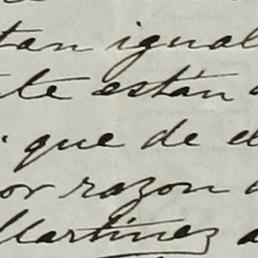 tan igual
te están
que de el
or razon
Martinez a